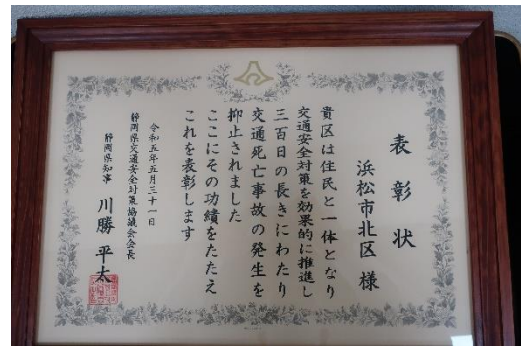 表彰状
浜松市北区 様
貴区は住民と一体となり
交通安全対策を効果的に推進し
三百日の長きにわたり
交通死亡事故の発生を
抑止されました
ここにその功績をたたえ
これを表彰します
令和五年五月三十一日
静岡県交通安全対策協議会会長
静岡県知事 川勝平太